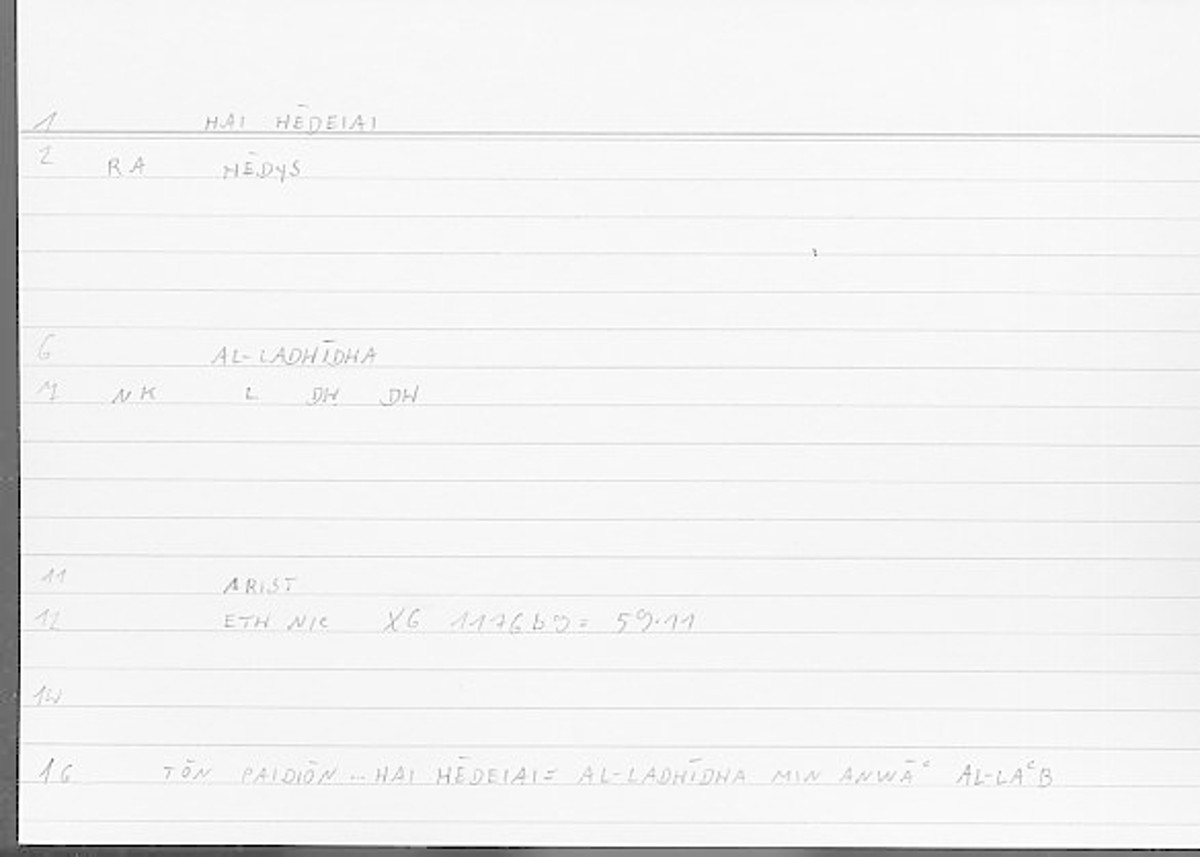 1 HAI HĒDEIAI
2 RA HĒDYS
6 AL-LADHĪDHA
7 NK L DH DH
11 ARIST
12 ETH NIC X6 1176b9= 59.11
14
16 TŌN PAIDIŌN .. HAI HĒDEIAI= AL-LADHĪDHA MIN ANWĀʿ AL-LAʿB